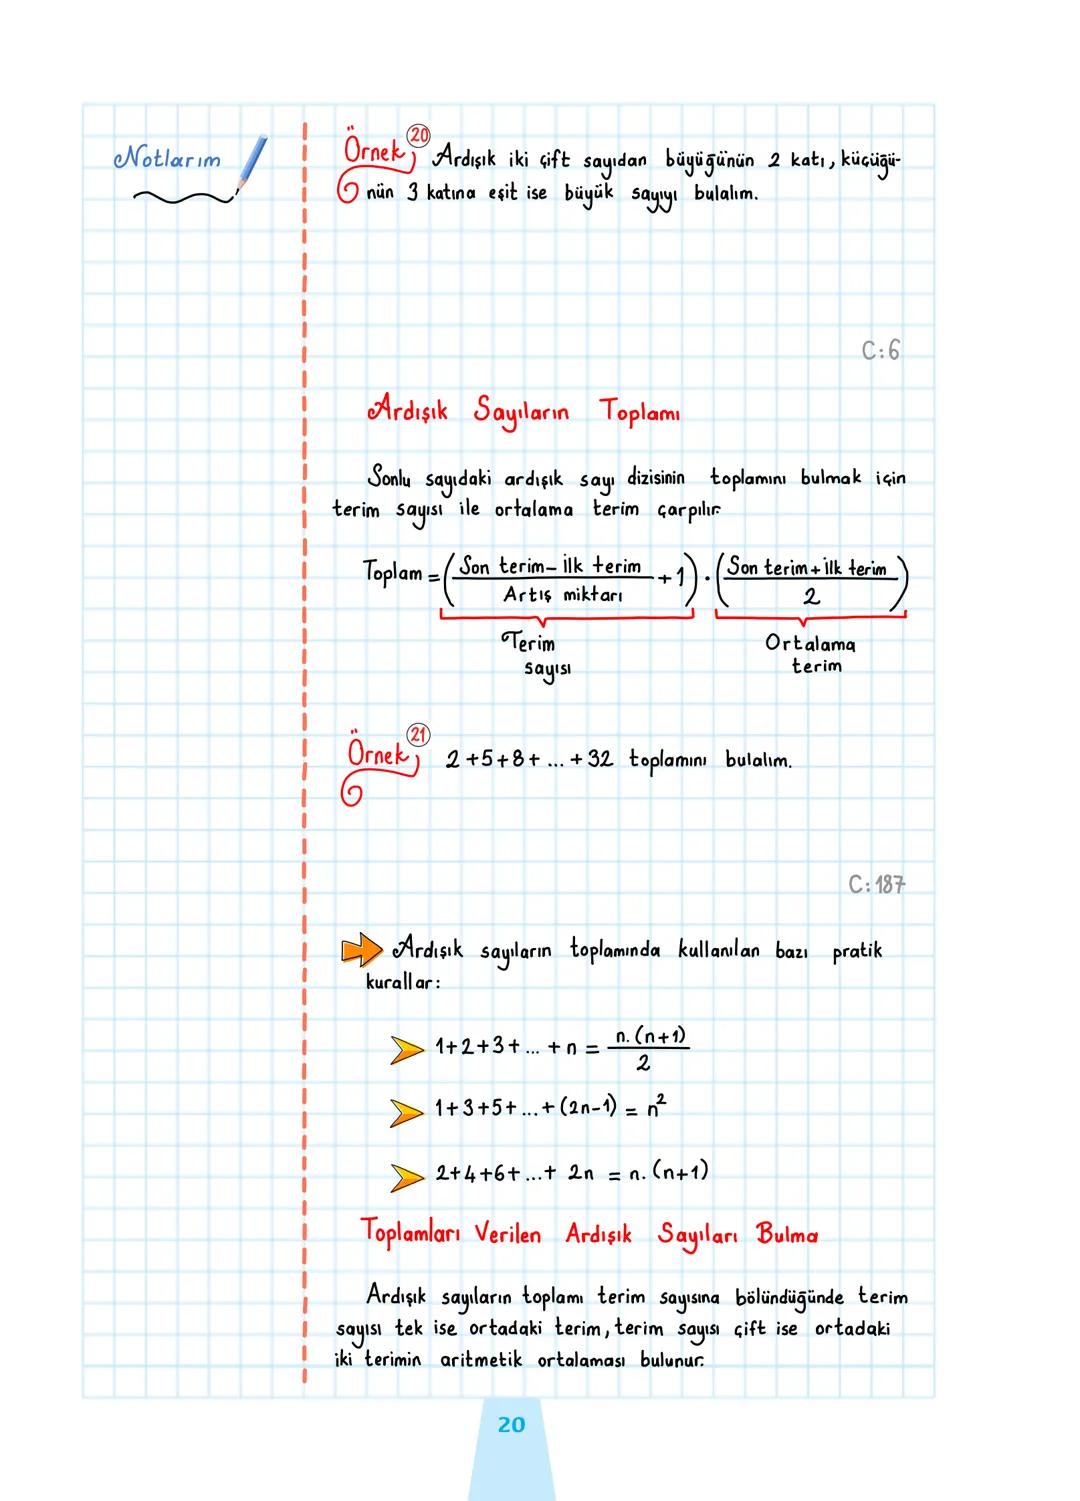 Notlarım
Örnek 20 Ardışık iki çift sayıdan büyüğünün 2 katı, küçüğü-
nün 3 katına eşit ise büyük sayıyı bulalım.
C:6
Ardışık Sayıların Toplamı
Sonlu sayıdaki ardışık sayı dizisinin toplamını bulmak için
terim sayısı ile ortalama terim çarpılır.
Toplam = ((Son terim - İlk terim) / (Artış miktarı) + 1) . ((Son terim + İlk terim) / 2)
Terim sayısı
Ortalama terim
Örnek 21 2+5+8+ ... +32 toplamını bulalım.
C:187
Ardışık sayıların toplamında kullanılan bazı pratik
kurallar:
1+2+3+ ... +n = n.(n+1) / 2
1+3+5+ ... +(2n-1) = n²
2+4+6+ ... + 2n = n.(n+1)
Toplamları Verilen Ardışık Sayıları Bulma
Ardışık sayıların toplamı terim sayısına bölündüğünde terim
sayısı tek ise ortadaki terim, terim sayısı çift ise ortadaki
iki terimin aritmetik ortalaması bulunur.
20